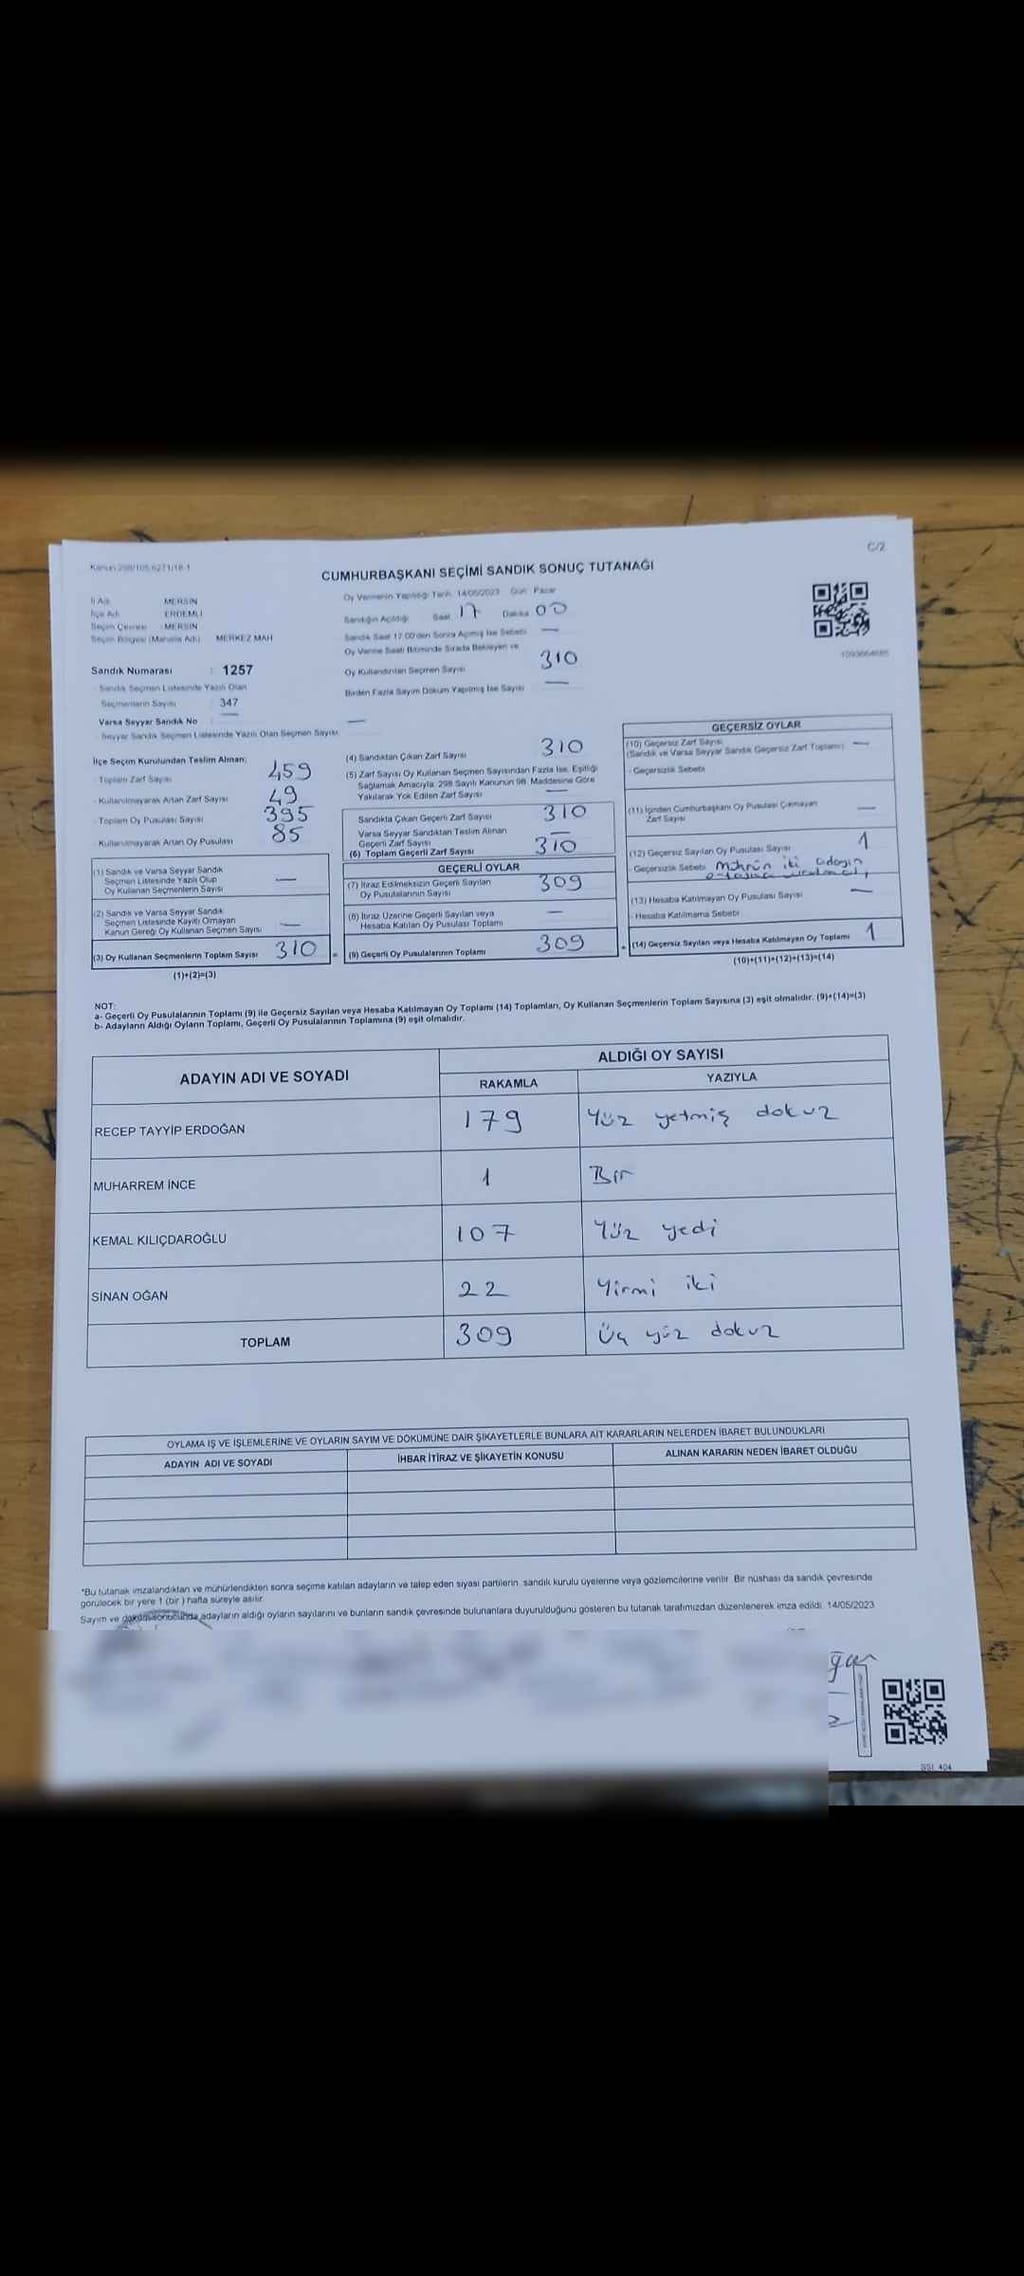 C/2
CUMHURBAŞKANI SEÇİMİ SANDIK SONUÇ TUTANAĞI
İl Adı MERSİN
İlçe Adı ERDEMLİ
Seçim Çevresi : MERSİN
Seçim Bölgesi (Mahalle Adı) MERKEZ MAH
Sandık Numarası : 1257
Sandık Seçmen Listesinde Yazılı Olan
Seçmenlerin Sayısı : 347
Varsa Seyyar Sandık No —
- Seyyar Sandık Seçmen Listesinde Yazılı Olan Seçmen Sayısı —
Oy Vermenin Yapıldığı Tarih 14/05/2023 Gün Pazar
Sandığın Açıldığı Saat 17 Dakika 00
Sandık Saat 17:00'den Sonra Açılmış İse Sebebi —
Oy Verme Saati Bitiminde Sırada Bekleyen ve
Oy Kullandırılan Seçmen Sayısı 310
Birden Fazla Sayım Döküm Yapılmış İse Sayısı —
İlçe Seçim Kurulundan Teslim Alınan;
- Toplam Zarf Sayısı 459
- Kullanılmayarak Artan Zarf Sayısı 49
- Toplam Oy Pusulası Sayısı 395
- Kullanılmayarak Artan Oy Pusulası 85
(1) Sandık ve Varsa Seyyar Sandık
Seçmen Listesinde Yazılı Olup
Oy Kullanan Seçmenlerin Sayısı —
(2) Sandık ve Varsa Seyyar Sandık
Seçmen Listesinde Kayıtlı Olmayan
Kanun Gereği Oy Kullanan Seçmen Sayısı —
(3) Oy Kullanan Seçmenlerin Toplam Sayısı 310
(1)+(2)=(3)
(4) Sandıktan Çıkan Zarf Sayısı 310
(5) Zarf Sayısı Oy Kullanan Seçmen Sayısından Fazla İse, Eşitliği
Sağlamak Amacıyla, 298 Sayılı Kanunun 98. Maddesine Göre
Yakılarak Yok Edilen Zarf Sayısı —
Sandıkta Çıkan Geçerli Zarf Sayısı 310
Varsa Seyyar Sandıktan Teslim Alınan
Geçerli Zarf Sayısı —
(6) Toplam Geçerli Zarf Sayısı 310
GEÇERLİ OYLAR
(7) İtiraz Edilmeksizin Geçerli Sayılan
Oy Pusulalarının Sayısı 309
(8) İtiraz Üzerine Geçerli Sayılan veya
Hesaba Katılan Oy Pusulası Toplamı —
(9) Geçerli Oy Pusulalarının Toplamı 309
GEÇERSİZ OYLAR
(10) Geçersiz Zarf Sayısı
(Sandık ve Varsa Seyyar Sandık Geçersiz Zarf Toplamı) —
- Geçersizlik Sebebi
(11) İçinden Cumhurbaşkanı Oy Pusulası Çıkmayan
Zarf Sayısı —
(12) Geçersiz Sayılan Oy Pusulası Sayısı 1
- Geçersizlik Sebebi Mührün iki adayın
(13) Hesaba Katılmayan Oy Pusulası Sayısı —
- Hesaba Katılmama Sebebi
(14) Geçersiz Sayılan veya Hesaba Katılmayan Oy Toplamı 1
(10)+(11)+(12)+(13)=(14)
NOT:
a- Geçerli Oy Pusulalarının Toplamı (9) ile Geçersiz Sayılan veya Hesaba Katılmayan Oy Toplamı (14) Toplamları, Oy Kullanan Seçmenlerin Toplam Sayısına (3) eşit olmalıdır. (9)+(14)=(3)
b- Adayların Aldığı Oyların Toplamı, Geçerli Oy Pusulalarının Toplamına (9) eşit olmalıdır.
ADAYIN ADI VE SOYADI
ALDIĞI OY SAYISI
RAKAMLA YAZIYLA
RECEP TAYYİP ERDOĞAN 179 Yüz yetmiş dokuz
MUHARREM İNCE 1 Bir
KEMAL KILIÇDAROĞLU 107 Yüz yedi
SİNAN OĞAN 22 Yirmi iki
TOPLAM 309 Üç yüz dokuz
OYLAMA İŞ VE İŞLEMLERİNE VE OYLARIN SAYIM VE DÖKÜMÜNE DAİR ŞİKAYETLERLE BUNLARA AİT KARARLARIN NELERDEN İBARET BULUNDUKLARI
ADAYIN ADI VE SOYADI İHBAR İTİRAZ VE ŞİKAYETİN KONUSU ALINAN KARARIN NEDEN İBARET OLDUĞU
*Bu tutanak imzalandıktan ve mühürlendikten sonra seçime katılan adayların ve talep eden siyasi partilerin sandık kurulu üyelerine veya gözlemcilerine verilir. Bir nüshası da sandık çevresinde
görülecek bir yere 1 (bir ) hafta süreyle asılır.
Sayım ve döküm sonucunda adayların aldığı oyların sayılarını ve bunların sandık çevresinde bulunanlara duyurulduğunu gösteren bu tutanak tarafımızdan düzenlenerek imza edildi. 14/05/2023